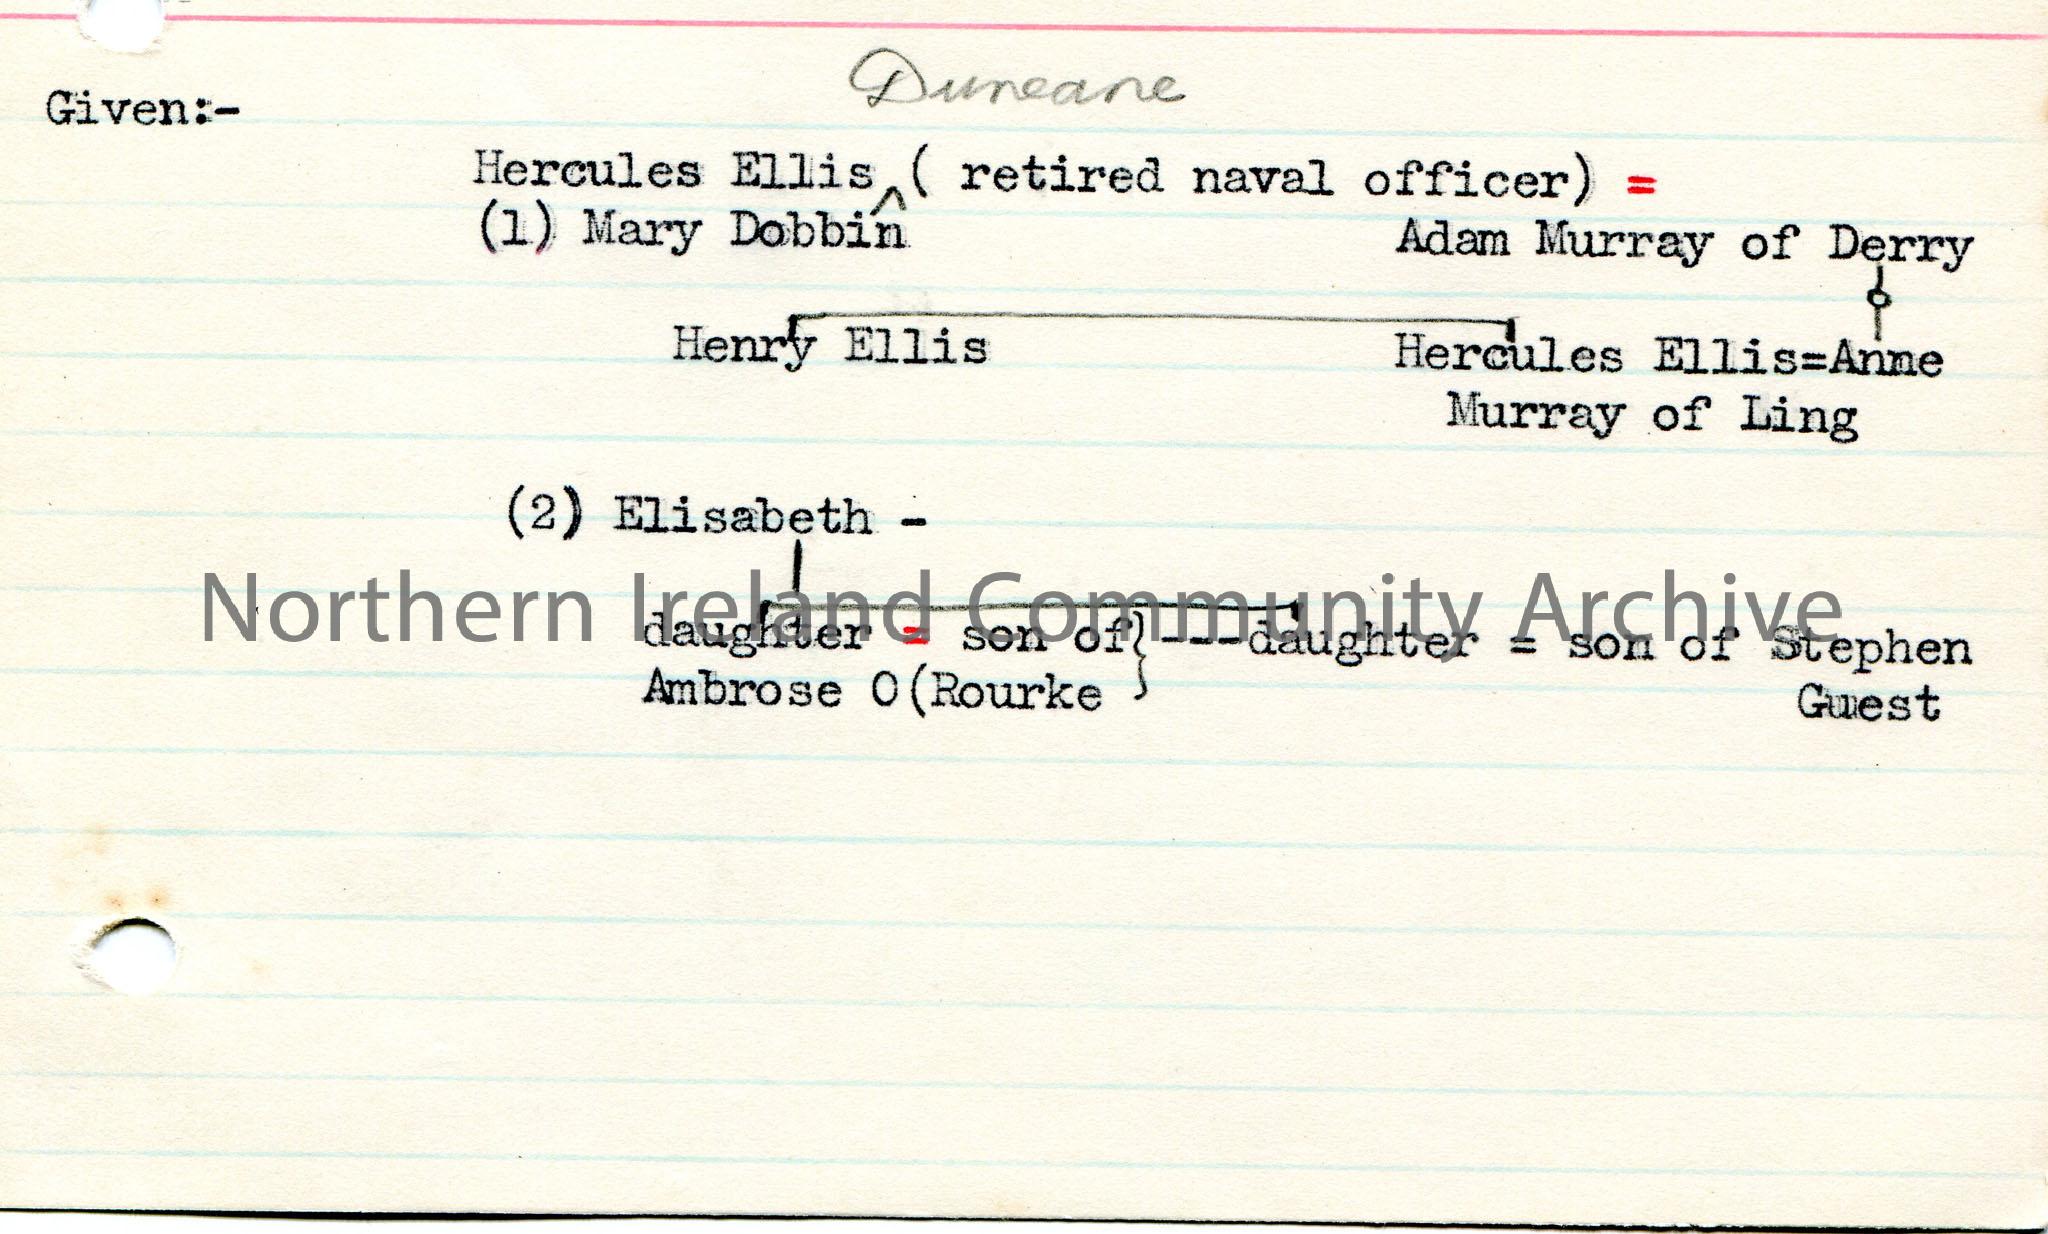 Duneane
Given:-
Hercules Ellis ( retired naval officer) =
(1) Mary Dobbin
Adam Murray of Derry
Henry Ellis
Hercules Ellis=Anne
Murray of Ling
(2) Elisabeth -
Northern Ireland Community Archive
daughter = son of} ---daughter = son of Stephen
Ambrose O(Rourke
Guest